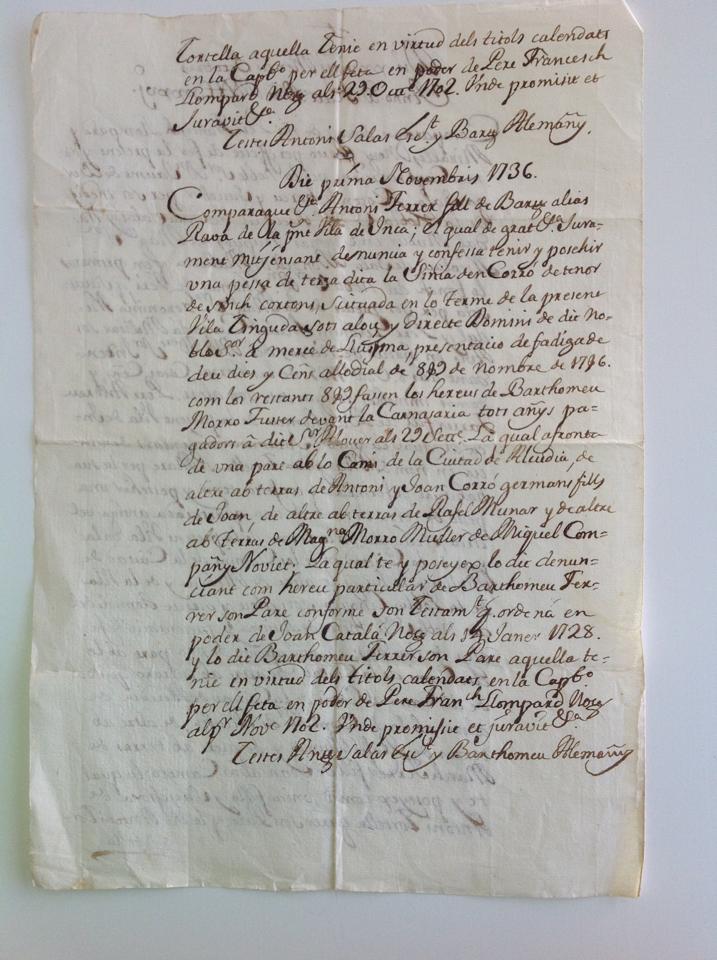 Tortella aquella tenie en virtud dels titols calendats
en la Capbo per ell feta en poder de Pere Francesch
Llompard Notz als 29. Octe 1702. Unde promisit et
Juravit &a.
Testes Antoni Salas y Bartz Alemañy.
Die prima Novembris 1736.
Comparague Antoni Ferrer fill de Bartz alias
Rava de la pnt Vila de Inca; el qual de grat &a Jura-
ment mitjensant denuncia y confessa tenir y posehir
una pessa de terra dita la Sinia den Corró de tenor
de sinch cortons, scituada en lo terme de la present
Vila tinguda sots alou, y directe Domini de dit No-
ble Sor. à merce de Lluisma, presentacio de fadiga de
deu dies y Cens allodial de de Nombre de 1716.
com los restants fassen los hereus de Barthomeu
Morro Fuster devant la Carnasaria tots añys pa-
gadors à dit Sor Alouer als 29 Sete. La qual afronta
de una part ab lo Cami de la Ciutad de Alcudia, de
altre ab terras de Antoni y Joan Corró germans fills
de Joan, de altre ab terras de Rafel Munar y de altre
ab Terras de Magna Morro Muller de Miquel Com-
pañy Noviet. La qual te y poseyex lo dit denun-
ciant com hereu particular de Barthomeu Fer-
rer son Pare conforme son Testamt. ordená en
poder de Joan Catalá Notz als Janer 1728.
y lo dit Barthomeu Ferrer son Pare aquella te-
nie en virtud dels titols calendats en la Capbo
per ell feta en poder de Pere Franch Llompard Notz
al pr Nove 1702. Unde promisit et juravit &a
Testes Antz Salas y Barthomeu Alemañy